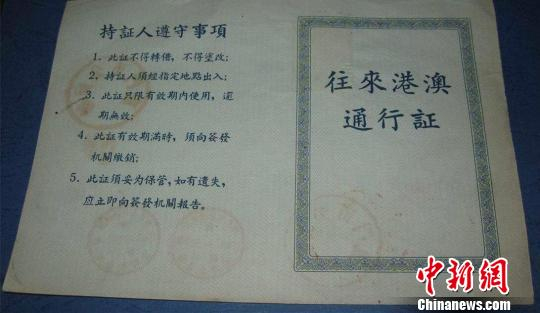 持証人遵守事項
1．此証不得轉借，不得塗改；
2．持証人須經指定地點出入；
3．此証只限有效期內使用，逾
期無效；
4．此証有效期滿時，須向簽發
机關繳銷；
5．此証須妥为保管，如有遺失，
应立即向簽發机關報告。
往來港澳
通行証
中新网
Chinanews.com